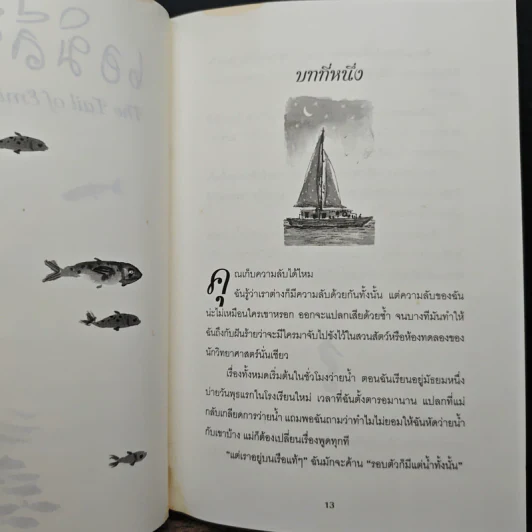 เอมิลี่
The Tail of Emi
บทที่หนึ่ง
คุณเก็บความลับได้ไหม
ฉันรู้ว่าเราต่างก็มีความลับด้วยกันทั้งนั้น แต่ความลับของฉัน
น่ะไม่เหมือนใครเขาหรอก ออกจะแปลกเสียด้วยซ้ำ จนบางทีมันทำให้
ฉันถึงกับฝันร้ายว่าจะมีใครมาจับไปขังไว้ในสวนสัตว์หรือห้องทดลองของ
นักวิทยาศาสตร์นั่นเชียว
เรื่องทั้งหมดเริ่มต้นในชั่วโมงว่ายน้ำ ตอนฉันเรียนอยู่มัธยมหนึ่ง
บ่ายวันพุธแรกในโรงเรียนใหม่ เวลาที่ฉันตั้งตารอมานาน แปลกที่แม่
กลับเกลียดการว่ายน้ำ แถมพอฉันถามว่าทำไมไม่ยอมให้ฉันหัดว่ายน้ำ
กับเขาบ้าง แม่ก็ต้องเปลี่ยนเรื่องพูดทุกที
"แต่เราอยู่บนเรือแท้ๆ" ฉันมักจะค้าน "รอบตัวก็มีแต่น้ำทั้งนั้น"
13